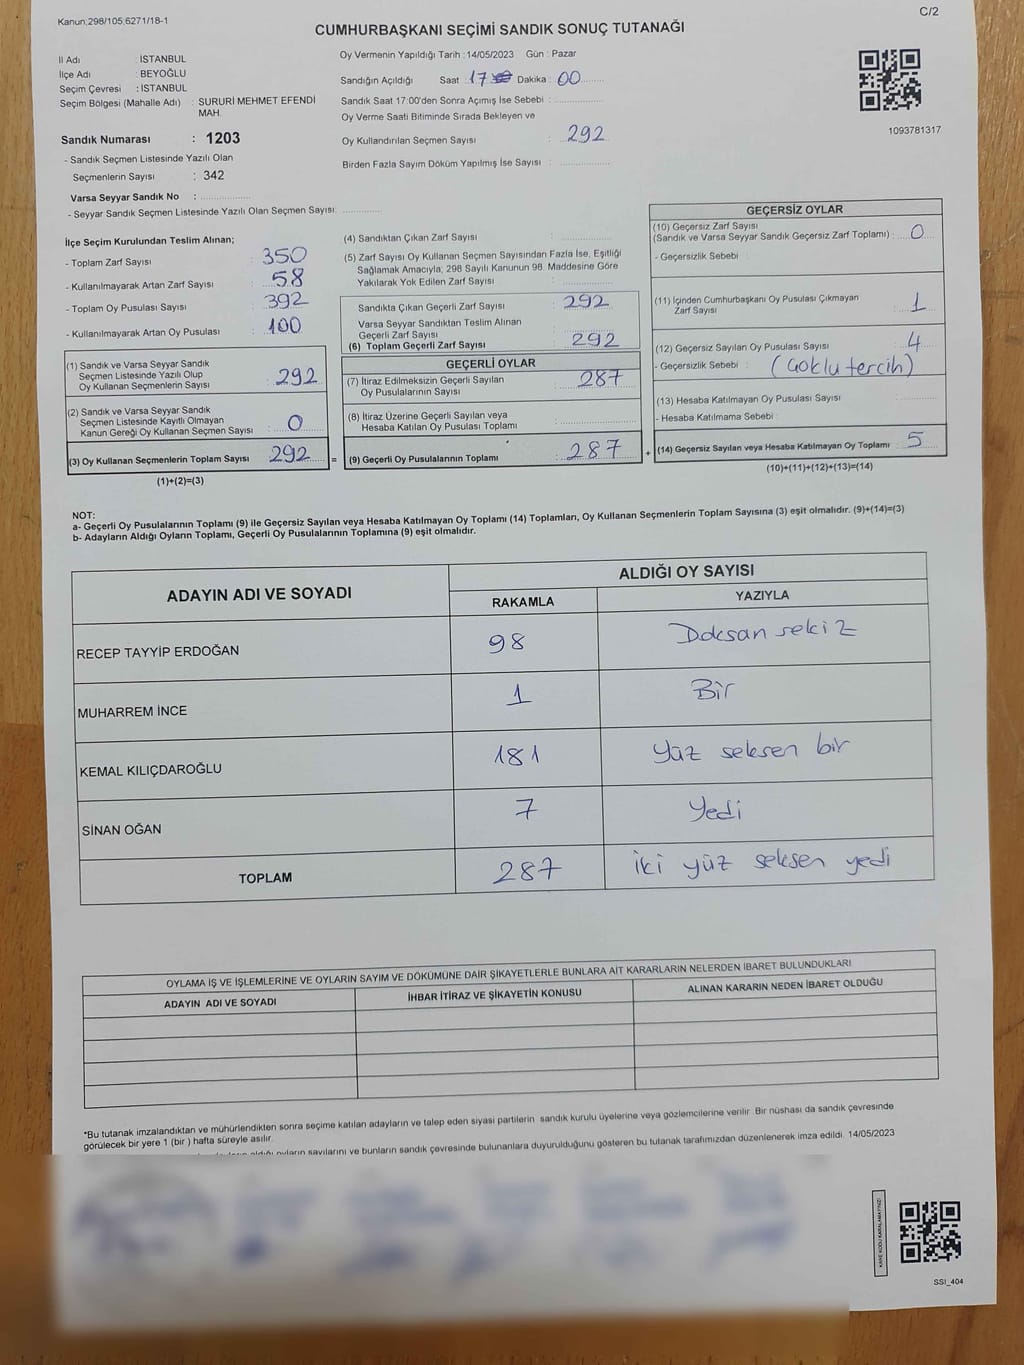 Kanun:298/105;6271/18-1
C/2
CUMHURBAŞKANI SEÇİMİ SANDIK SONUÇ TUTANAĞI
İl Adı : İSTANBUL
İlçe Adı : BEYOĞLU
Seçim Çevresi : İSTANBUL
Seçim Bölgesi (Mahalle Adı) : SURURİ MEHMET EFENDİ
MAH.
Sandık Numarası : 1203
- Sandık Seçmen Listesinde Yazılı Olan
Seçmenlerin Sayısı : 342
Varsa Seyyar Sandık No :
- Seyyar Sandık Seçmen Listesinde Yazılı Olan Seçmen Sayısı:
Oy Vermenin Yapıldığı Tarih : 14/05/2023 Gün : Pazar
Sandığın Açıldığı Saat : 17 Dakika : 00
Sandık Saat 17:00'den Sonra Açımış İse Sebebi :
Oy Verme Saati Bitiminde Sırada Bekleyen ve
Oy Kullandırılan Seçmen Sayısı : 292
Birden Fazla Sayım Döküm Yapılmış İse Sayısı :
1093781317
İlçe Seçim Kurulundan Teslim Alınan;
- Toplam Zarf Sayısı : 350
- Kullanılmayarak Artan Zarf Sayısı : 58
- Toplam Oy Pusulası Sayısı : 392
- Kullanılmayarak Artan Oy Pusulası : 100
(1) Sandık ve Varsa Seyyar Sandık
Seçmen Listesinde Yazılı Olup
Oy Kullanan Seçmenlerin Sayısı : 292
(2) Sandık ve Varsa Seyyar Sandık
Seçmen Listesinde Kayıtlı Olmayan
Kanun Gereği Oy Kullanan Seçmen Sayısı : 0
(3) Oy Kullanan Seçmenlerin Toplam Sayısı : 292 =
(1)+(2)=(3)
(4) Sandıktan Çıkan Zarf Sayısı :
(5) Zarf Sayısı Oy Kullanan Seçmen Sayısından Fazla İse, Eşitliği
Sağlamak Amacıyla; 298 Sayılı Kanunun 98. Maddesine Göre
Yakılarak Yok Edilen Zarf Sayısı :
Sandıkta Çıkan Geçerli Zarf Sayısı : 292
Varsa Seyyar Sandıktan Teslim Alınan
Geçerli Zarf Sayısı :
(6) Toplam Geçerli Zarf Sayısı : 292
GEÇERLİ OYLAR
(7) İtiraz Edilmeksizin Geçerli Sayılan
Oy Pusulalarının Sayısı : 287
(8) İtiraz Üzerine Geçerli Sayılan veya
Hesaba Katılan Oy Pusulası Toplamı :
(9) Geçerli Oy Pusulalarının Toplamı : 287 +
GEÇERSİZ OYLAR
(10) Geçersiz Zarf Sayısı
(Sandık ve Varsa Seyyar Sandık Geçersiz Zarf Toplamı) : 0
- Geçersizlik Sebebi :
(11) İçinden Cumhurbaşkanı Oy Pusulası Çıkmayan
Zarf Sayısı : 1
(12) Geçersiz Sayılan Oy Pusulası Sayısı : 4
- Geçersizlik Sebebi : (Çoklu tercih)
(13) Hesaba Katılmayan Oy Pusulası Sayısı :
- Hesaba Katılmama Sebebi :
(14) Geçersiz Sayılan veya Hesaba Katılmayan Oy Toplamı : 5
(10)+(11)+(12)+(13)=(14)
NOT:
a- Geçerli Oy Pusulalarının Toplamı (9) ile Geçersiz Sayılan veya Hesaba Katılmayan Oy Toplamı (14) Toplamları, Oy Kullanan Seçmenlerin Toplam Sayısına (3) eşit olmalıdır. (9)+(14)=(3)
b- Adayların Aldığı Oyların Toplamı, Geçerli Oy Pusulalarının Toplamına (9) eşit olmalıdır.
ADAYIN ADI VE SOYADI
ALDIĞI OY SAYISI
RAKAMLA YAZIYLA
RECEP TAYYİP ERDOĞAN 98 Doksan sekiz
MUHARREM İNCE 1 Bir
KEMAL KILIÇDAROĞLU 181 Yüz seksen bir
SİNAN OĞAN 7 Yedi
TOPLAM 287 iki yüz seksen yedi
OYLAMA İŞ VE İŞLEMLERİNE VE OYLARIN SAYIM VE DÖKÜMÜNE DAİR ŞİKAYETLERLE BUNLARA AİT KARARLARIN NELERDEN İBARET BULUNDUKLARI
ADAYIN ADI VE SOYADI İHBAR İTİRAZ VE ŞİKAYETİN KONUSU ALINAN KARARIN NEDEN İBARET OLDUĞU
*Bu tutanak imzalandıktan ve mühürlendikten sonra seçime katılan adayların ve talep eden siyasi partilerin sandık kurulu üyelerine veya gözlemcilerine verilir. Bir nüshası da sandık çevresinde
görülecek bir yere 1 (bir ) hafta süreyle asılır.
oyların sayılarını ve bunların sandık çevresinde bulunanlara duyurulduğunu gösteren bu tutanak tarafımızdan düzenlenerek imza edildi. 14/05/2023
KARE KODU KARALAMAYINIZ!
SSI_404